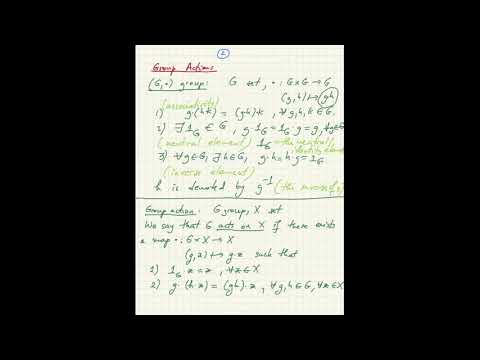 2
Group Actions
(G,·) group: G set, · : G×G → G
(g,h) ↦ gh
(associativity)
1) g·(h·k) = (gh)·k, ∀g,h,k ∈ G.
2) ∃1_G ∈ G, g·1_G = 1_G·g = g, ∀g∈G
(neutral element) 1_G = the neutral/
identity element
3) ∀g∈G, ∃h∈G, g·h = h·g = 1_G
(inverse element)
h is denoted by g⁻¹ (the inverse of g)
Group action: G group, X set
We say that G acts on X if there exists
a map · : G×X → X
(g,x) ↦ g·x such that
1) 1_G·x = x, ∀x∈X
2) g·(h·x) = (gh)·x, ∀g,h∈G, ∀x∈X